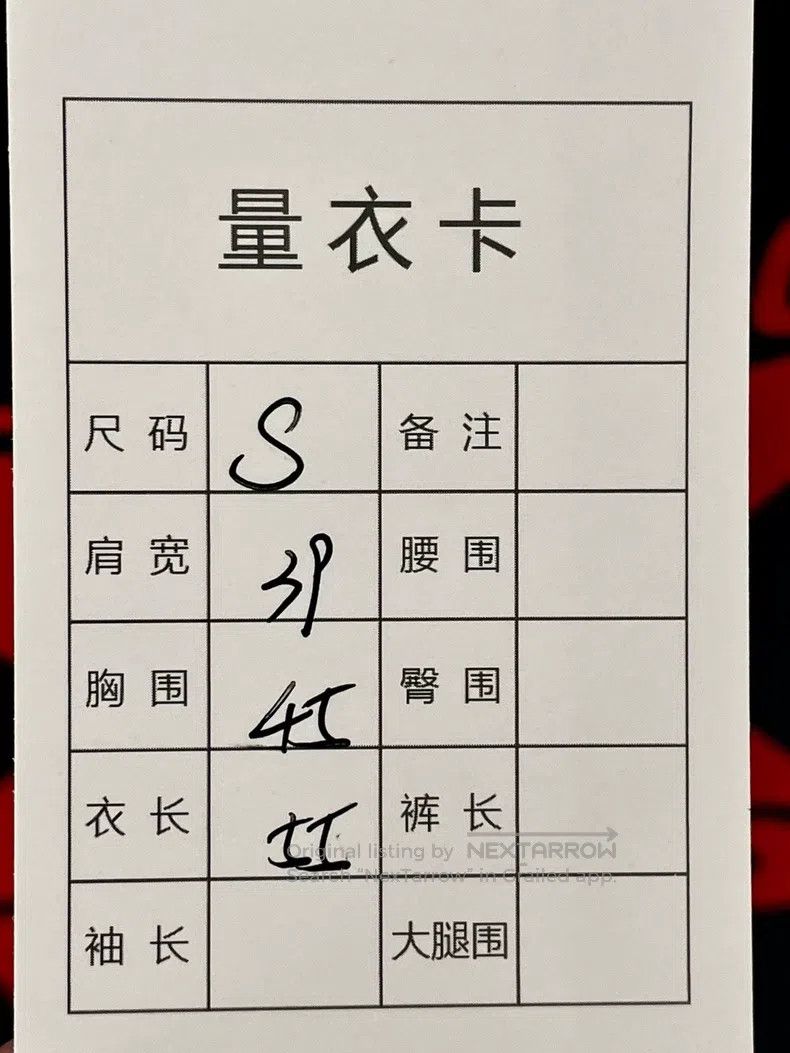 量衣卡
尺码 S 备注
肩宽 39 腰围
胸围 45 臀围
衣长 55 裤长
Original listing by NEXTARROW
Search "NexTarrow" in Grailed app.
袖长 大腿围